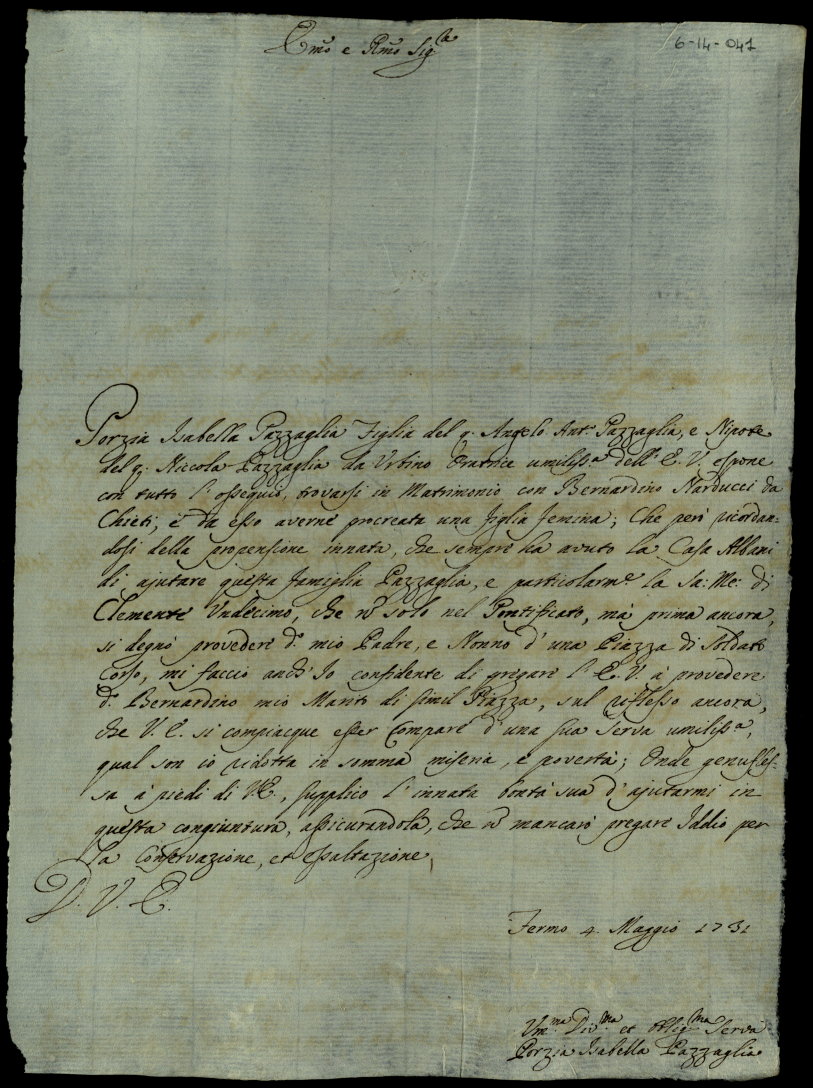 Em̃o e Rm̃o Sig.re
6-14-041
Porzia Isabella Pazzaglia Figlia del q. Angelo Ant.o Pazzaglia, e Nipote
del q. Niccola Pazzaglia da Urbino Oratrice umiliss.a dell' E. V. espone
con tutto l' ossequio, trovarsi in Matrimonio con Bernardino Narducci da
Chieti, e da esso averne procreata una figlia femina; Che però ricordan=
dosi della propensione innata, che sempre ha avuto la Casa Albani
di ajutare questa famiglia Pazzaglia, e particolarm.e la Sa: Me: di
Clemente Undecimo, che nõ solo nel Pontificato, mà prima ancora,
si degnò provedere d.o mio Padre, e Nonno d' una Piazza di Soldato
Corso, mi faccio anch' Io confidente di pregare l' E. V. à provedere
d.o Bernardino mio Marito di simil Piazza, sul riflesso ancora,
che V. E. si compiacque esser Compare d' una sua Serva umiliss.a,
qual son io ridotta in somma miseria, e povertà; Onde genufles=
sa à piedi di V.E., supplico l' innata bontà sua d' ajutarmi in
questa congiuntura, assicurandola, che nõ mancarò pregare Iddio per
la Conservazione, et essaltazione
D. V. E.
Fermo 4. Maggio 1731
Um.ma Div.ma et oblig.ma Serva
Porzia Isabella Pazzaglia